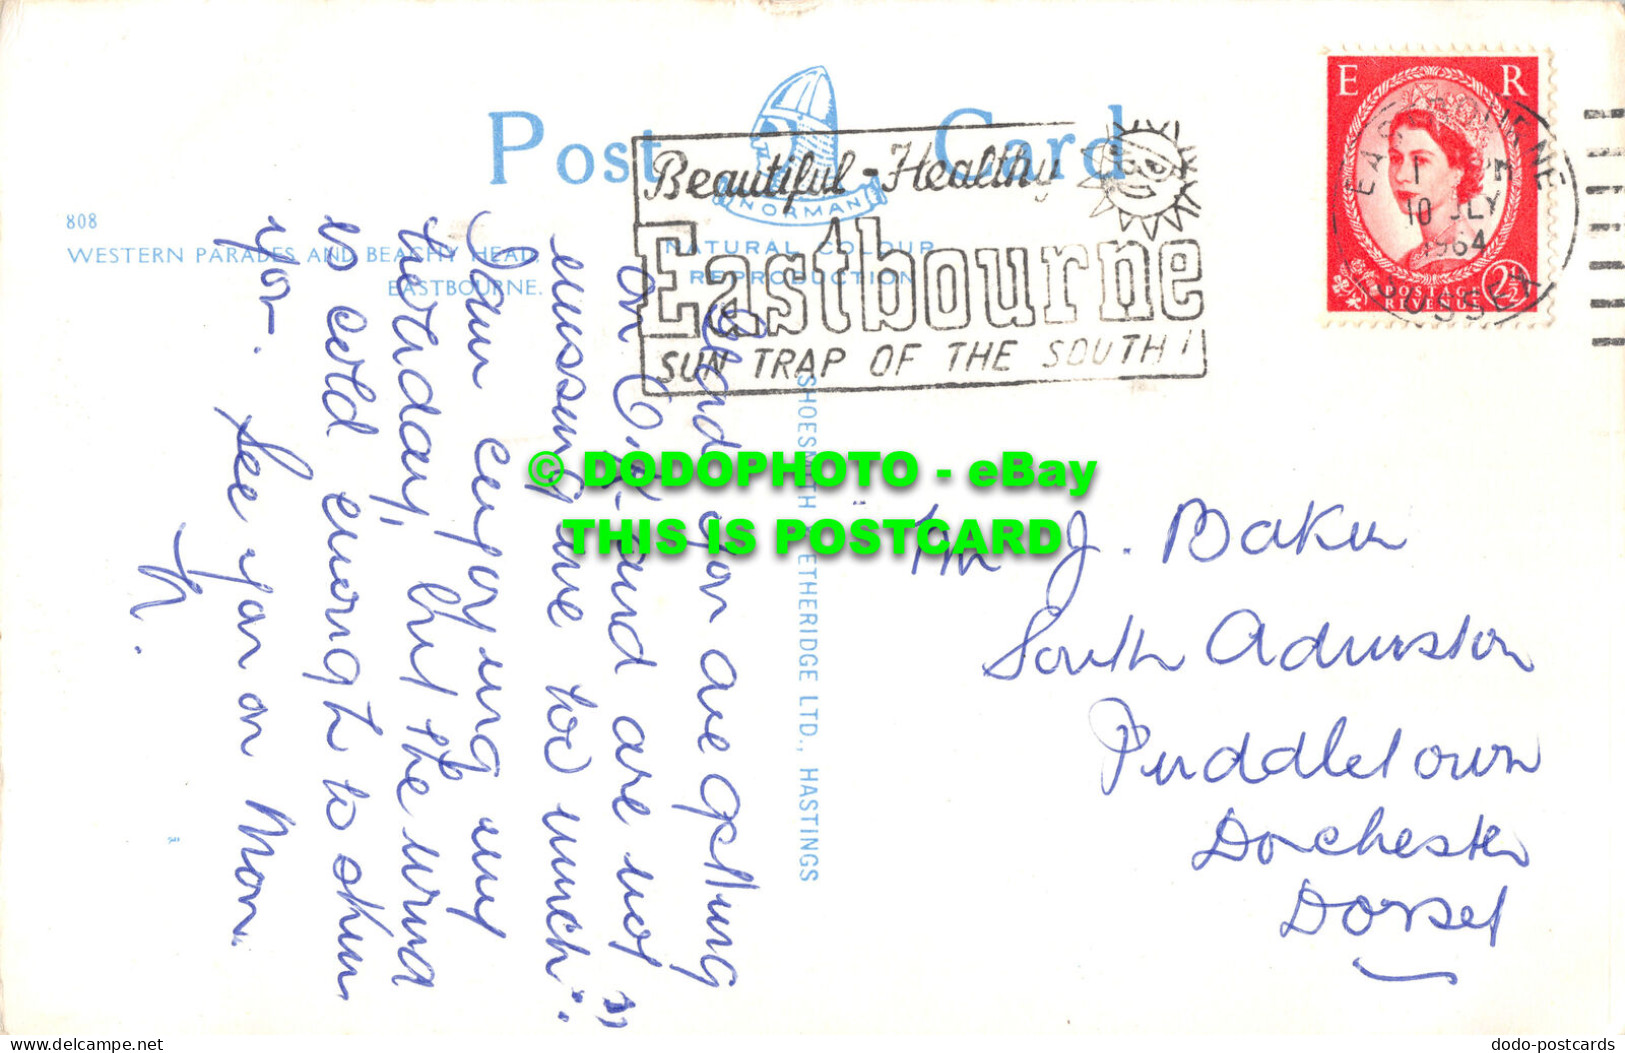 Post Card
NORMAN
NATURAL COLOUR
REPRODUCTION
808
WESTERN PARADES AND BEACHY HEAD,
EASTBOURNE.
Beautiful - Healthy
Eastbourne
SUN TRAP OF THE SOUTH!
E R
POSTAGE
REVENUE
2½
EASTBOURNE
10 JLY
1964
SUSSEX
Glad you are getting
on O.K. and are not "
missing me too much".
I am enjoying my
holiday, but the wind
is cold enough to skin
you. See you on Mon.
SHOESMITH & ETHERIDGE LTD., HASTINGS
J. Baker
South Admiston
Puddletown
Dorchester
Dorset
© DODOPHOTO - eBay
THIS IS POSTCARD
delcampe.net
dodo-postcards